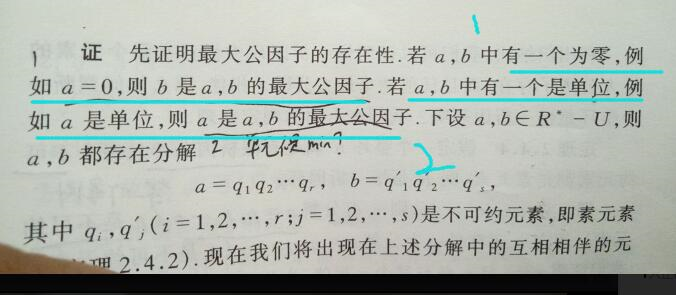 1
1 证 先证明最大公因子的存在性.若 a,b 中有一个为零,例
如 a=0,则 b 是 a,b 的最大公因子.若 a,b 中有一个是单位,例
如 a 是单位,则 a 是 a,b 的最大公因子.下设 a,b∈R*-U,则
a,b 都存在分解 2 min? 2
a=q₁q₂…qᵣ, b=q′₁q′₂…q′ₛ,
其中 qᵢ,q′ⱼ(i=1,2,…,r;j=1,2,…,s)是不可约元素,即素元素
理 2.4.2).现在我们将出现在上述分解中的互相相伴的元